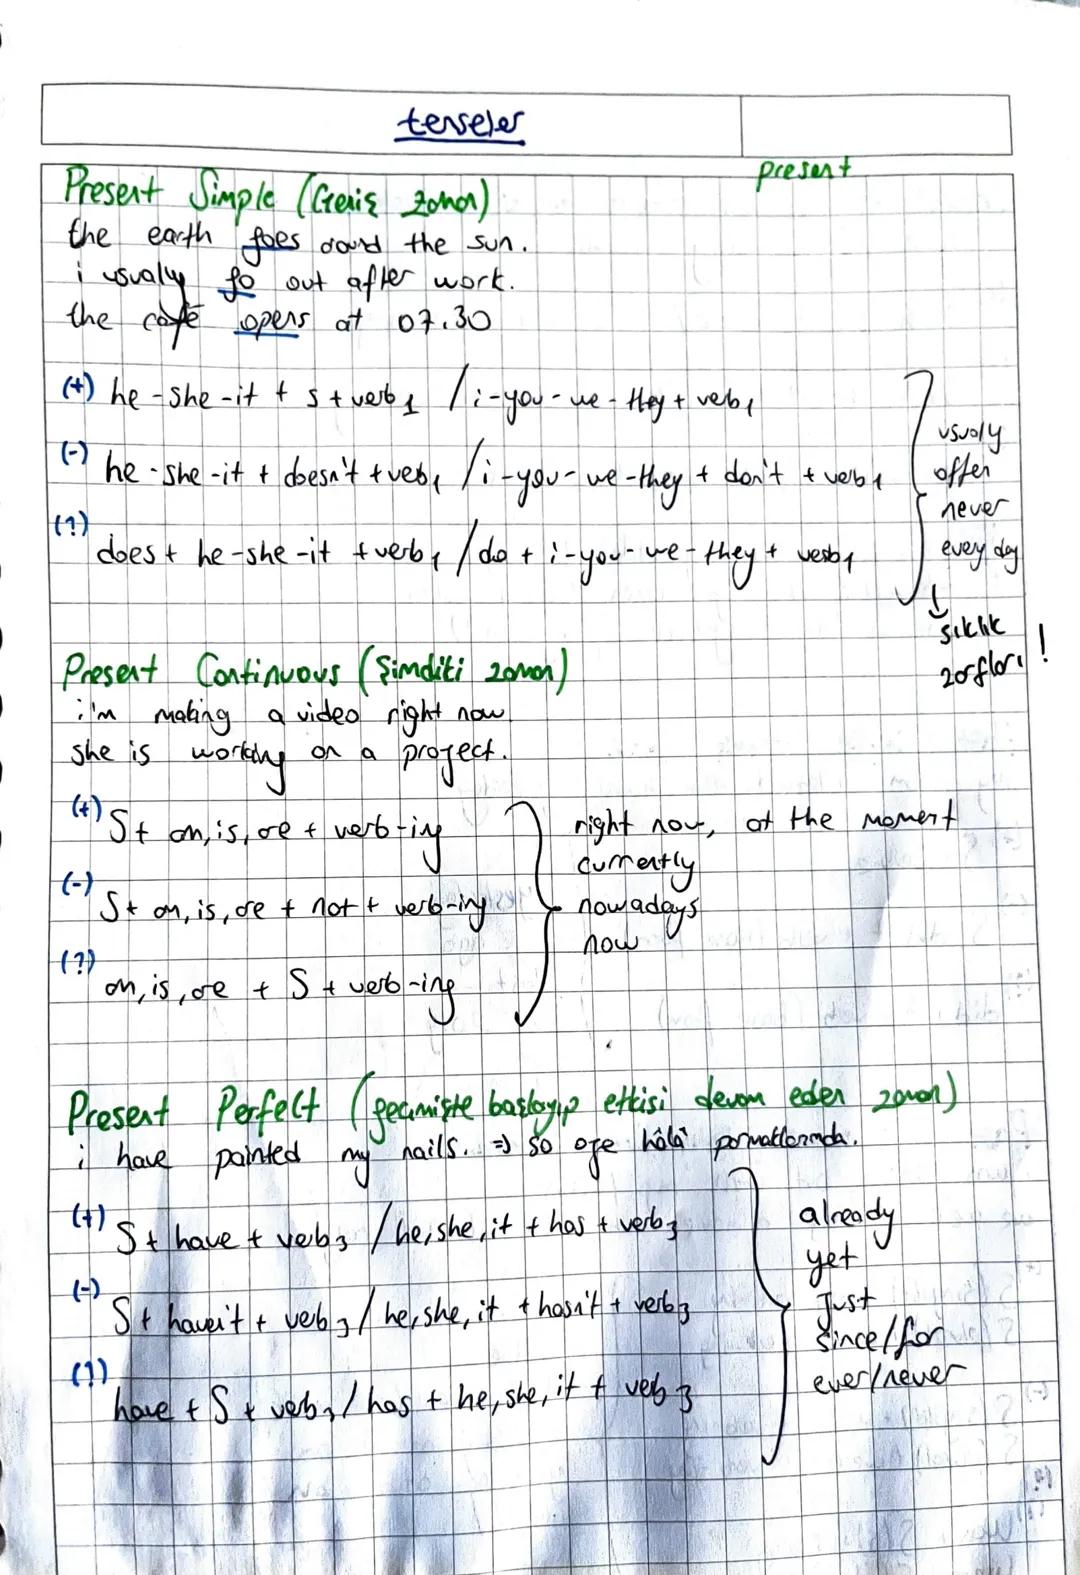 tenseler
present
Present Simple (Geniş zaman)
the earth goes around the sun.
i usually go out after work.
the café opens at 07.30
(+) he-she-it + s + verb1 / i-you-we-they + verb1
(-) he-she-it + doesn't + verb1 / i-you-we-they + don't + verb1
(?) does + he-she-it + verb1 / do + i-you-we-they + verb1
usualy
often
never
every day
↓
sıklık
zarfları !
Present Continuous (Şimdiki zaman)
i'm making a video right now
she is working on a project.
(+) S + am, is, are + verb-ing
(-) S + am, is, are + not + verb-ing
(?) am, is, are + S + verb-ing
right now, at the moment
currently
nowadays
now
Present Perfect (geçmişte başlayıp etkisi devam eden zaman)
i have painted my nails. => şo oje hâlâ parmaklarımda.
(+) S + have + verb3 / he, she, it + has + verb3
(-) S + haven't + verb3 / he, she, it + hasn't + verb3
(?) have + S + verb3 / has + he, she, it + verb3
already
yet
Just
since/for
ever/never